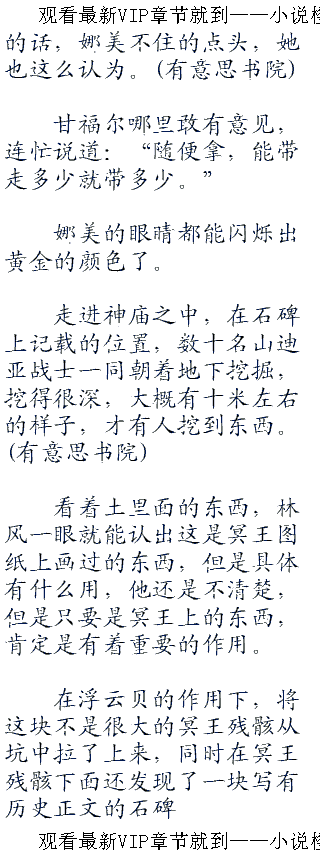 观看最新VIP章节就到——小说
的话，娜美不住的点头，她
也这么认为。(有意思书院)
甘福尔哪里敢有意见，
连忙说道：“随便拿，能带
走多少就带多少。”
娜美的眼睛都能闪烁出
黄金的颜色了。
走进神庙之中，在石碑
上记载的位置，数十名山迪
亚战士一同朝着地下挖掘，
挖得很深，大概有十米左右
的样子，才有人挖到东西。
(有意思书院)
看着土里面的东西，林
风一眼就能认出这是冥王图
纸上画过的东西，但是具体
有什么用，他还是不清楚，
但是只要是冥王上的东西，
肯定是有着重要的作用。
在浮云贝的作用下，将
这块不是很大的冥王残骸从
坑中拉了上来，同时在冥王
残骸下面还发现了一块写有
历史正文的石碑
观看最新VIP章节就到——小说